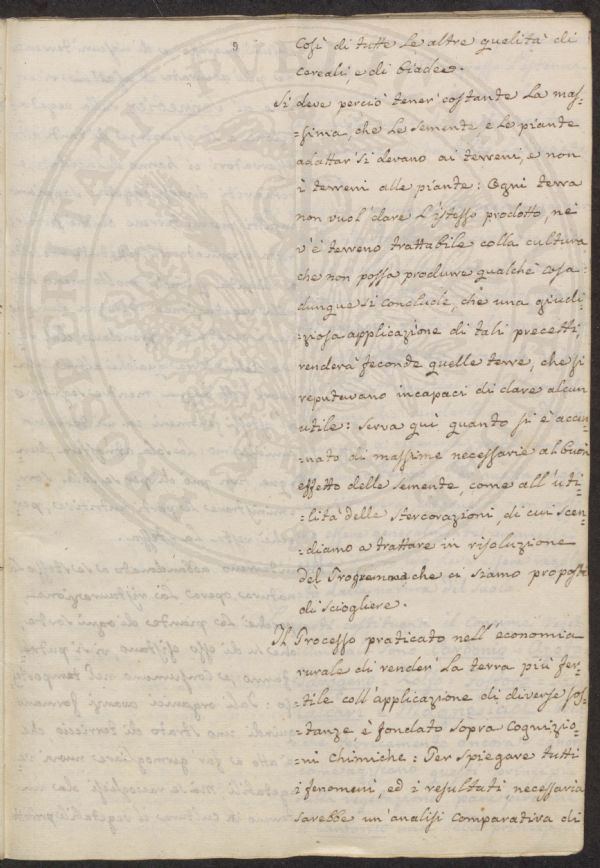 9
Così di tutte le altre quelità di
Cereali, e di biadee.
Si deve perciò tener costante la mas-
=sima, che le semente e le piante
adattar si devano ai terreni, e non
i terreni alle piante: Ogni terra
non vuol dare l'istesso prodotto, nè
v'è terreno trattabile colla cultura
che non possa produrre qualche cosa:
dunque si conclude, che una giudi-
=ziosa applicazione di tali precetti,
renderà feconde quelle terre, che si
reputavano incapaci di dare alcun
utile: Serva quì quanto si è accen-
=nato di massime necessarie al buon
effetto delle semente, come all'uti-
=lità delle stercorazioni, di cui scen-
=diamo a trattare in risoluzione
del Programma che ci siamo proposti
di sciogliere.
Il Processo praticato nell'economia
rurale di render la terra più fer-
=tile coll'applicazione di diverse sos-
=tanze, è fondato sopra Cognizio-
=ni Chimiche: Per spiegare tutti
i fenomeni, ed i resultati necessaria
sarebbe un'analisi comparativa di